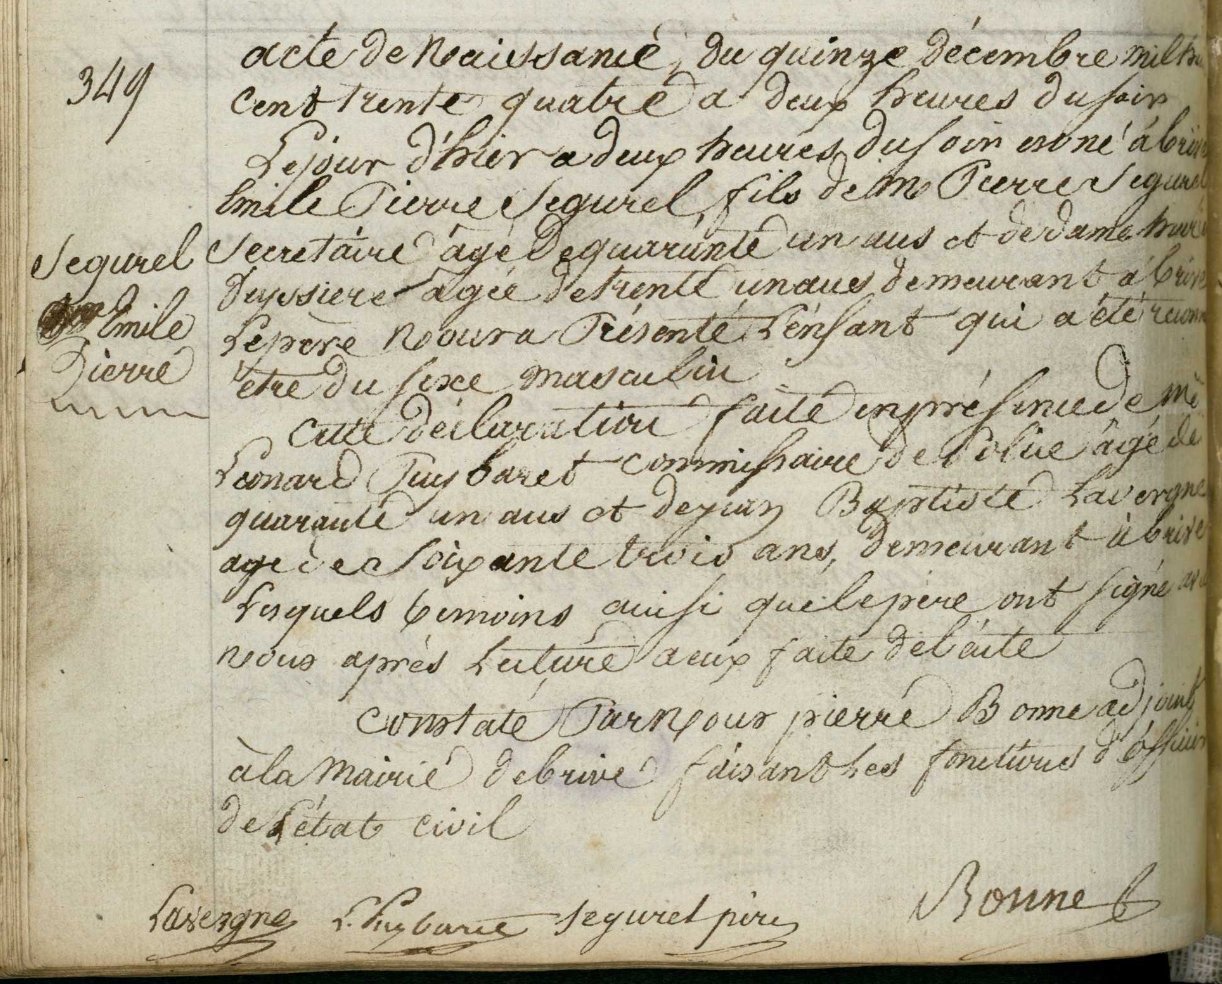 349
acte de Naissance, du quinze décembre mil hu
cent trente quatre a deux heures du soir
Le jour d'hier a deux heures du soir est né à brive
Emile Pierre Segurel, fils de Mr Pierre Segurel
Secretaire âgé de quarante un ans et de dame
Segurel
Emile
Pierre
Deyssiere agée de trente un ans demeurant à brive
Le père Nous a Présenté L'énfant qui a été reconn
être du sexe masculin
Cette déclaration faite en présence de Mr
Léonard Puybaret commissaire de Police âgé de
quarante un ans et de jean Baptiste Lavergne
agé de Soixante trois ans, demeurant à brive
Lesquels temoins ainsi que le père ont signé av
nous après Lecture a eux faite de l'acte
Constaté Par Nous pierre Bonne adjoint
à la Mairie de brive faisant Les fonctions d'officier
de L'état civil
Lavergne L. Puybaret Segurel père Bonne